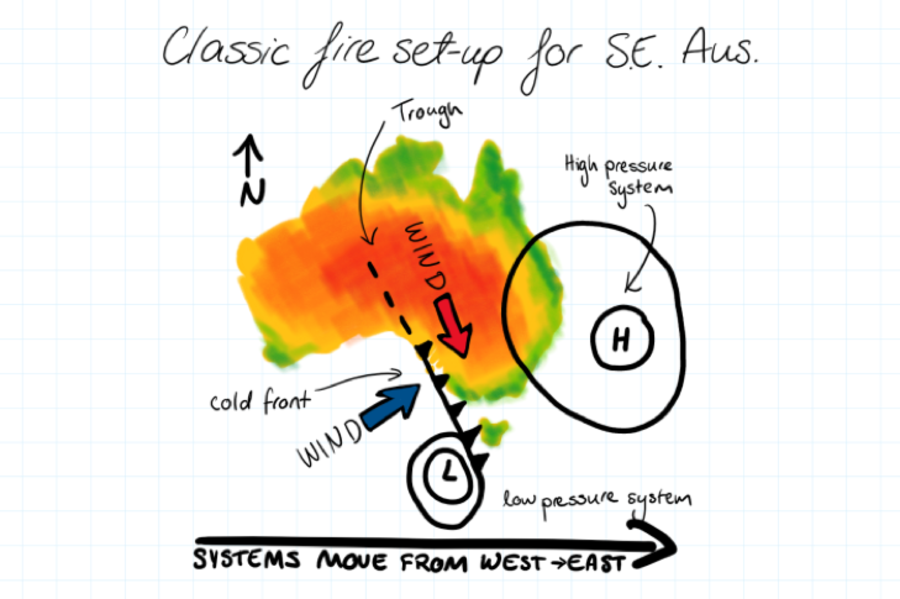 Classic fire set-up for S.E. Aus.
Trough
N
High pressure
system
WIND
H
cold front
WIND
L
low pressure system
SYSTEMS MOVE FROM WEST→EAST